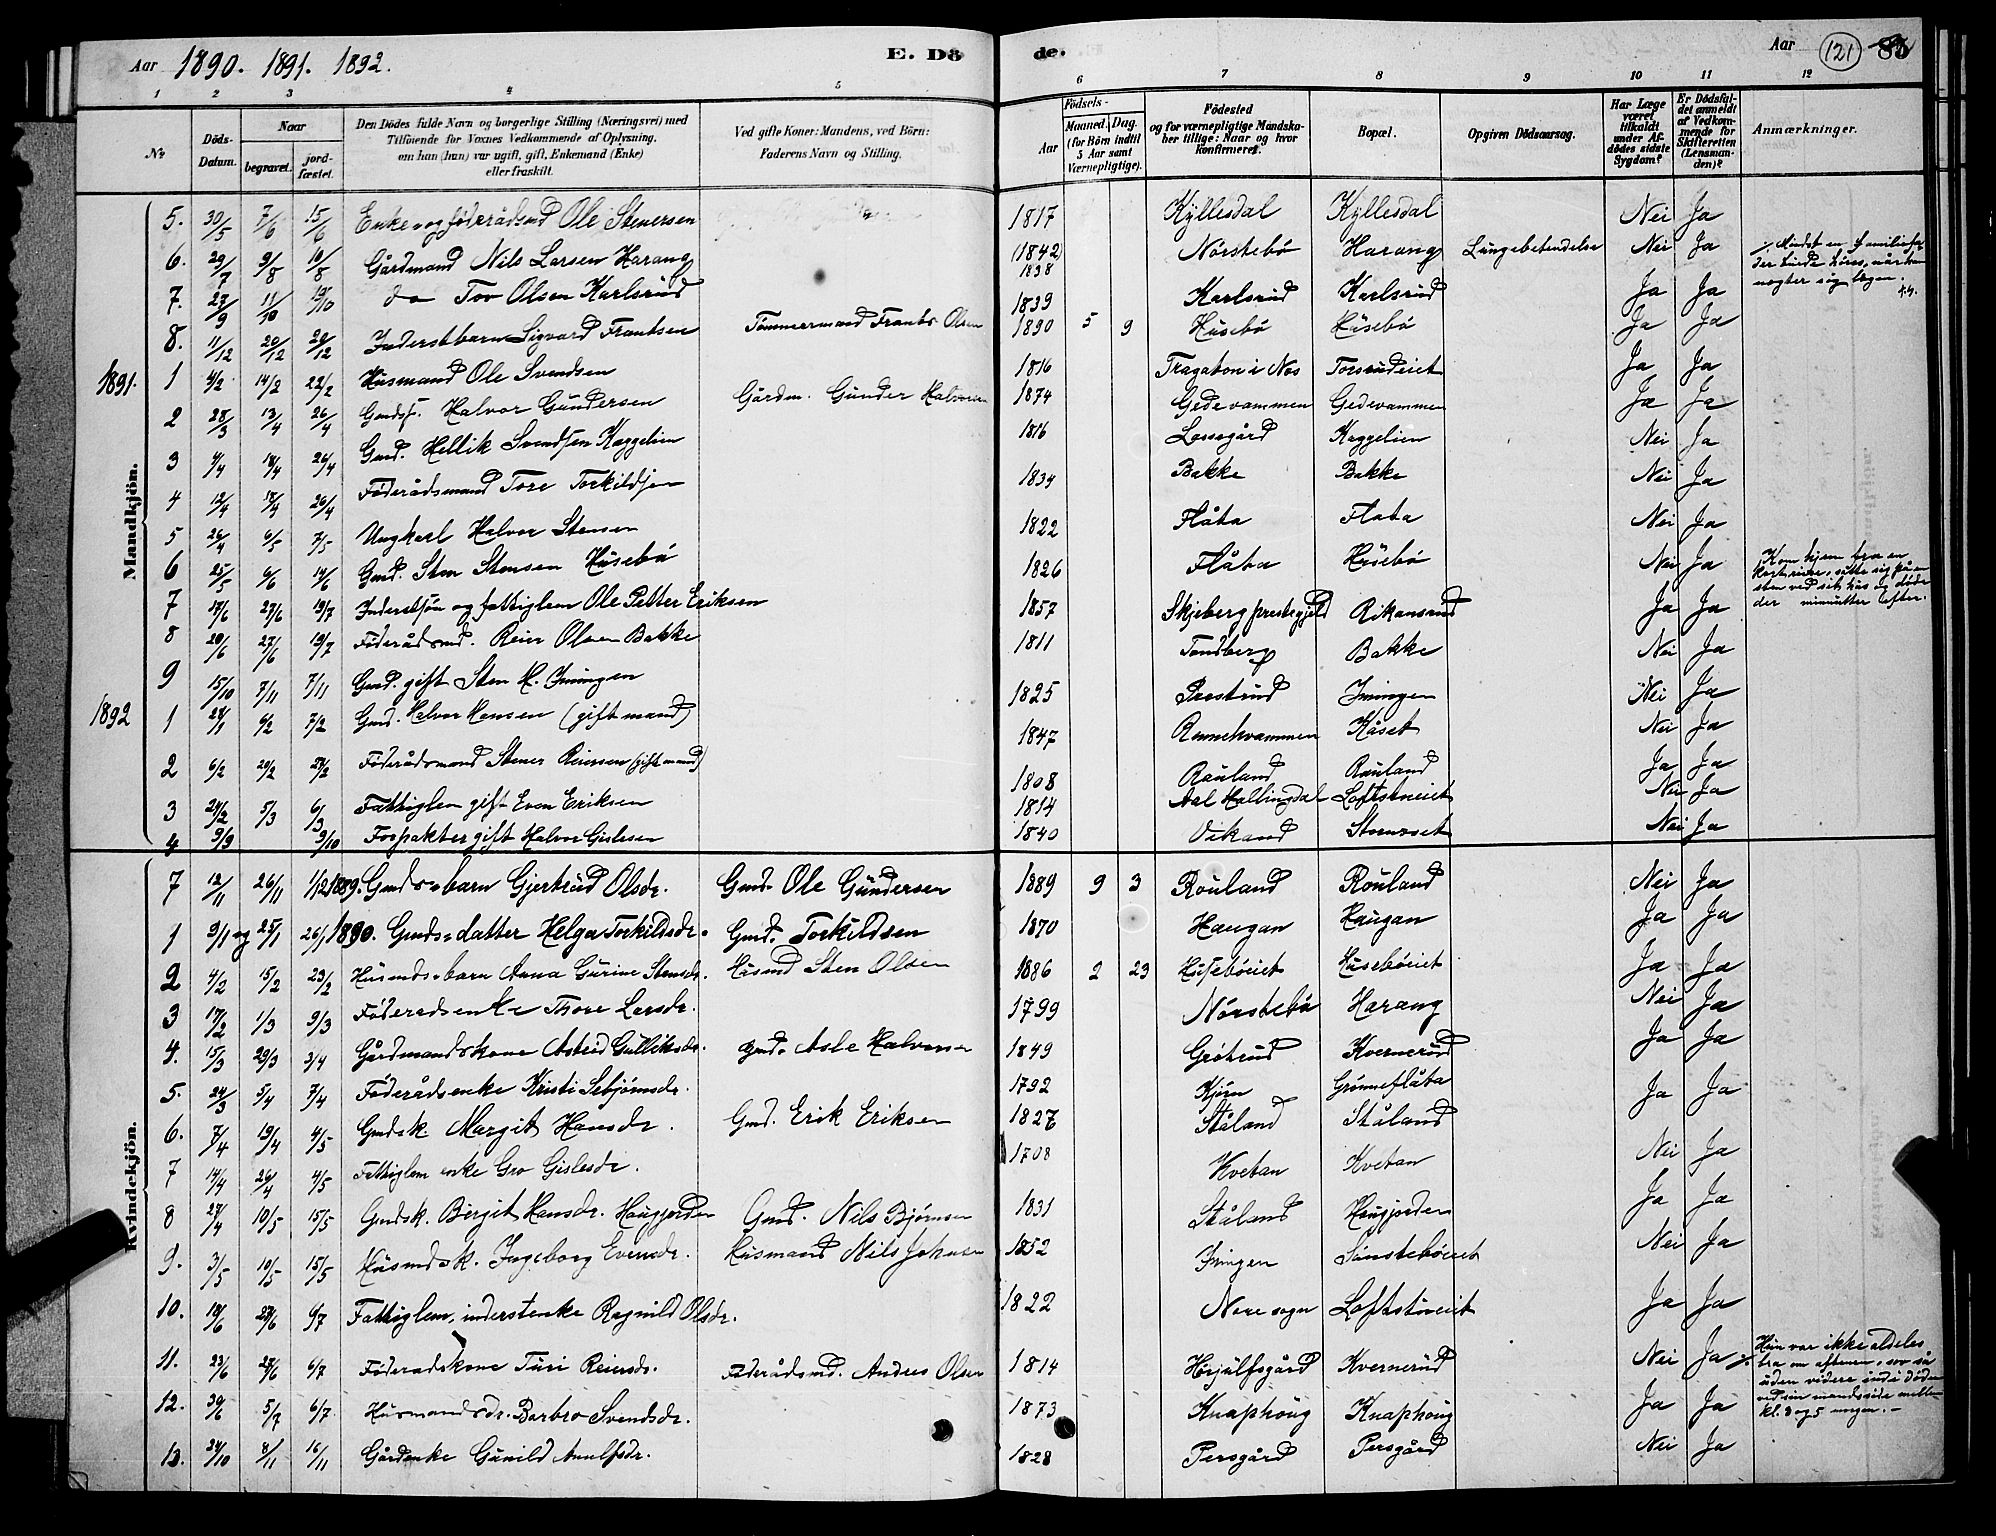 Aar 1890. 1891. 1892. E. Dö de. Aar 121 85
1 2 3 4 5 6 7 8 9 10 11 12
No. Döds-Datum. Naar begravet. jord-fæstet. Den Dödes fulde Navn og borgerlige Stilling (Næringsvei) med Tilföiende for Voxnes Vedkommende af Oplysning, om han (hun) var ugift, gift, Enkemand (Enke) eller fraskilt. Ved gifte Koner: Mandens, ved Börn: Faderens Navn og Stilling. Födsels- Aar Maaned. Dag. (for Börn indtil 5 Aar samt Værnepligtige). Födested og for værnepligtige Mandskaber tillige: Naar og hvor konfirmeret. Bopæl. Opgiven Dödsaarsag. Har Læge været tilkaldt under Afdödes sidste Sygdom? Er Dödsfaldet anmeldt af Vedkommende for Skifteretten (Lensmanden)? Anmærkninger.
Mandkjön.
5. 30/5 7/6 15/6 Enke og föderådsmd Ole Stenersen 1817 Kyllesdal Kyllesdal Nei Ja
6. 29/7 9/8 10/8 Gårdmand Nils Larsen Harang (1842) 1838 Nörstebö Harang Lungebetendelse Nei Ja
7. 27/9 11/10 19/10 do Tov Olsen Karlsrud 1839 Karlsrud Karlsrud Ja Ja
8. 11/12 20/12 29/12 Inderstbarn Sigvard Frantsen Tömmermand Frants Olsen 1890 5 9 Husebö Husebö Ja Ja
1891. 1 4/2 14/2 22/2 Husmand Ole Svendsen 1816 Tragaton i Nes Torsrudeiet Ja Ja
2 28/3 13/4 26/4 Gmdss. Halvor Gundersen Gårdm. Gunder Halvorsen 1874 Gedevammen Gedevammen Ja Ja
3 4/4 18/4 26/4 Gmd. Hellik Svendsen Kaggelien 1816 Lassegård Kaggelien Nei Ja
4 12/4 18/4 26/4 Föderådsmand Tore Torkildsen 1834 Bakke Bakke Nei Ja
5 26/4 6/5 7/5 Ungkarl Halvor Stensen 1822 Flåta Flata Nei Ja
6 25/5 6/6 14/6 Gmd. Sten Stensen Husebö 1826 Flåta Husebö Nei Ja
7 17/6 27/6 19/7 Inderstsön og fattiglem Ole Petter Eriksen 1857 Skjeberg prestegjeld Rikansrud Ja Ja
8 20/6 27/6 19/7 Föderådsmd. Reier Olsen Bakke 1811 Tandberg Bakke Nei Ja
9 15/10 7/11 7/11 Gmd. gift Sten H. Imingen 1825 Prestrud Imingen Nei Ja
1892 1 28/1 6/2 7/2 Gmd. Halvor Hansen (gift mand) 1847 Rennehvammen Kåset Nei Ja
2 6/2 20/2 27/2 Föderådsmand Stener Reiersen (gift mand) 1808 Rauland Rauland Ja Ja
3 24/2 5/3 6/3 Fattiglem gift Even Eriksen 1814 Aal Hallingdal Loftstueiet Nei Ja
4 9/9 9/10 Forpakter gift Halvor Gislesen 1840 Vikand Nei Ja
Kvindekjön.
7 12/11 26/11 1/12 1889. Gmds-barn Gjertrud Olsdr. Gmd. Ole Gundersen 1889 9 3 Rouland Rouland Nei Ja
1 9/1 og 25/1 26/1 1890. Gmds-datter Helga Torkildsdr. Gmd. Torkildsen 1870 Haugan Haugan Ja Ja
2 4/2 15/2 23/2 Husmds-barn Anna Gurine Stensdr. Husmd Sten Olsen 1886 2 23 Huseböeiet Huseböeiet Ja Ja
3 17/2 1/3 9/3 Föderadsenke Thore Larsdr. 1799 Nörstebö Harang Nei Ja
4. 15/3 29/3 3/4 Gårdmandskone Astrid Gulliksdr. Gmd. Asle Halvorsen 1849 Grötrud Kvernerud Ja Ja
5. 24/3 5/4 7/4 Föderådsenke Kristi Sebjörnsdr. 1792 Kjörn Grönneflåta Ja Ja
6. 7/4 19/4 4/5 Gmdsk. Margit Hansdr. Gmd. Erik Eriksen 1827 Ståland Ståland
7 14/4 26/4 4/5 Fattiglem enke Gro Gislesdr. 1708 Kvetan Kvetan Nei Ja
8 27/4 10/5 15/5 Gmdsk. Birgit Hansdr. Haugjorden Gmd. Nils Bjørnsen 1831 Ståland Haugjorden Ja Ja
9. 3/5 10/5 15/5 Husmdsk. Ingeborg Evensdr. Husmand Nils Johnsen 1852 Imingen Sönsteböeiet Nei Ja
10. 18/6 27/6 6/7 Fattiglem, inderstenke Ragnild Olsdr. 1822 Nore sogn Loftstueiet Ja Ja
11. 23/6 27/6 6/7 Föderadskone Turi Reiersdr. Föderådsmd. Anders Olsen 1814 Herjulfsgård Kvernerud Nei Ja
Hun var ikke aldeles
bra om aftenen, sov så
uden videre ind i döden
ved sin mands side mellem
kl. 3 og 5 morgen.-
12. 30/6 5/7 6/7 Husmandsdr. Barbro Svendsdr. 1873 Knaphoug Knaphoug Ja Ja
13. 24/10 8/11 16/11 Gårdenke Gunild Arnulfsdr. 1828 Persgård Persgård Nei Ja